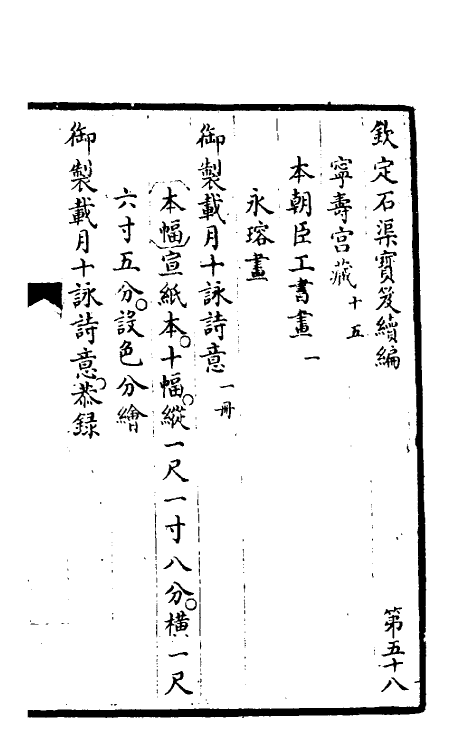 欽定石渠寶笈續編 第五十八
寧壽宮藏十五
本朝臣工書畫一
永瑢畫
御製載月十詠詩意一冊
本幅宣紙本。十幅。縱一尺一寸八分。橫一尺
六寸五分。設色分繪
御製載月十詠詩意。恭録